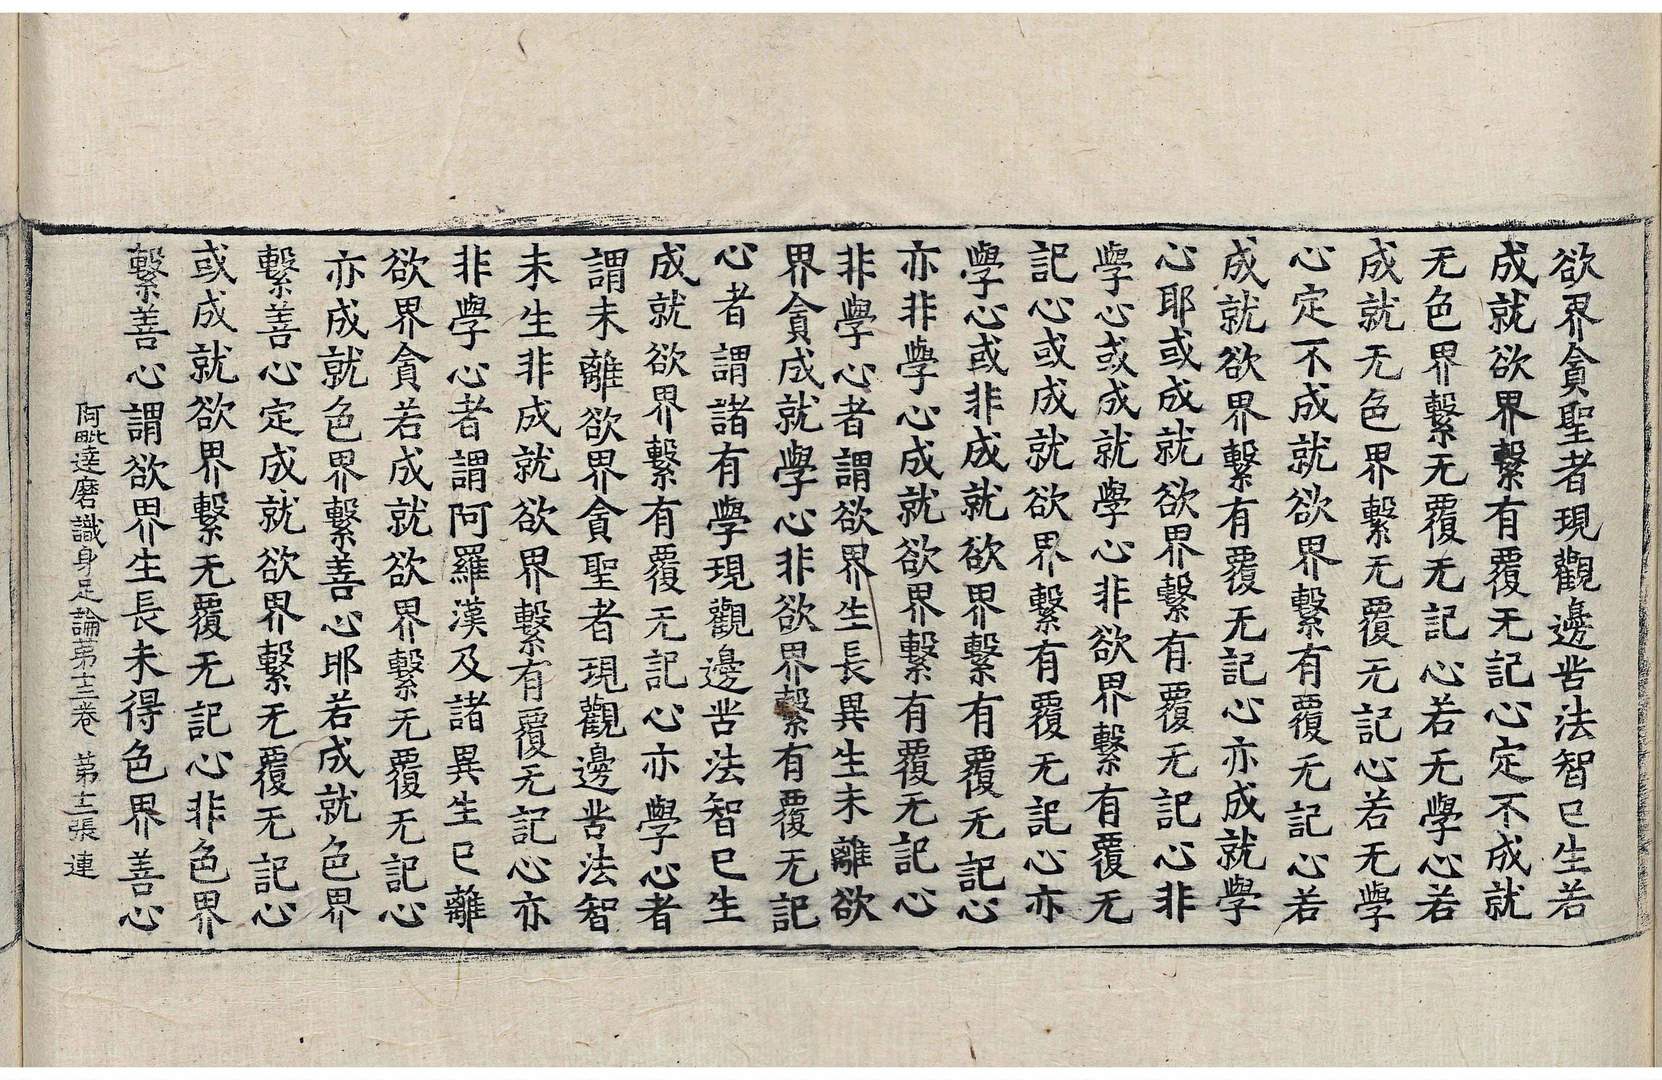 欲界貪聖者現觀邊苦法智已生若
成就欲界繫有覆无記心定不成就
无色界繫无覆无記心若无學心若
成就无色界繫无覆无記心若无學
心定不成就欲界繫有覆无記心若
成就欲界繫有覆无記心亦成就學
心耶或成就欲界繫有覆无記心非
學心或成就學心非欲界繫有覆无
記心或成就欲界繫有覆无記心亦
學心或非成就欲界繫有覆无記心
亦非學心成就欲界繫有覆无記心
非學心者謂欲界生長異生未離欲
界貪成就學心非欲界繫有覆无記
心者謂諸有學現觀邊苦法智已生
成就欲界繫有覆无記心亦學心者
謂未離欲界貪聖者現觀邊苦法智
未生非成就欲界繫有覆无記心亦
非學心者謂阿羅漢及諸異生已離
欲界貪若成就欲界繫无覆无記心
亦成就色界繫善心耶若成就色界
繫善心定成就欲界繫无覆无記心
或成就欲界繫无覆无記心非色界
繫善心謂欲界生長未得色界善心
阿毗達磨識身足論第十三卷 第十二張 連